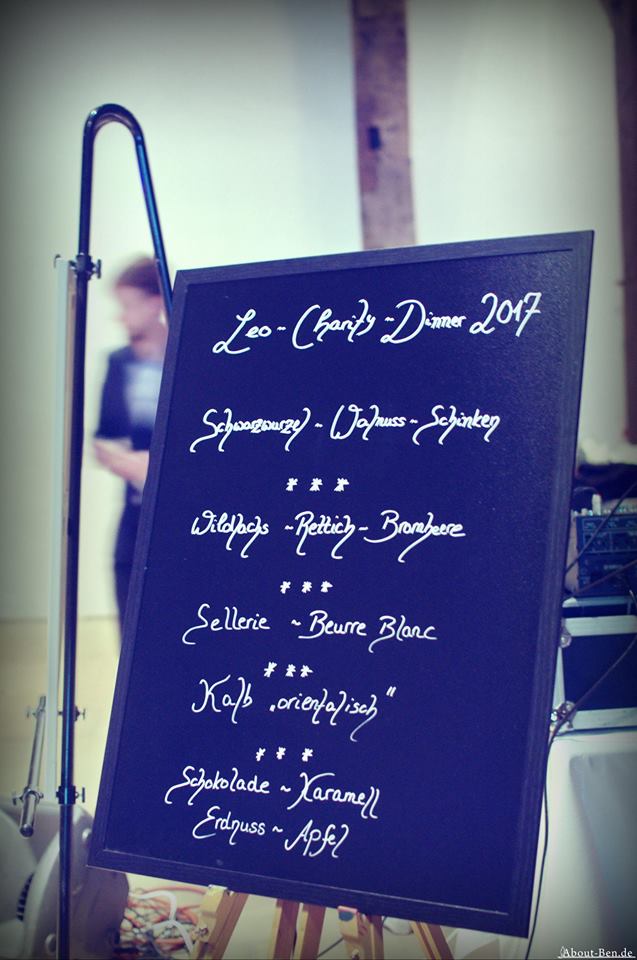 Leo ~ Charity ~ Dinner 2017
Schwarzwurzel ~ Walnuss ~ Schinken
* * *
Wildlachs ~ Rettich ~ Brombeere
* * *
Sellerie ~ Beurre Blanc
* * *
Kalb „orientalisch“
* * *
Schokolade ~ Karamell
Erdnuss ~ Apfel
About-Ben.de